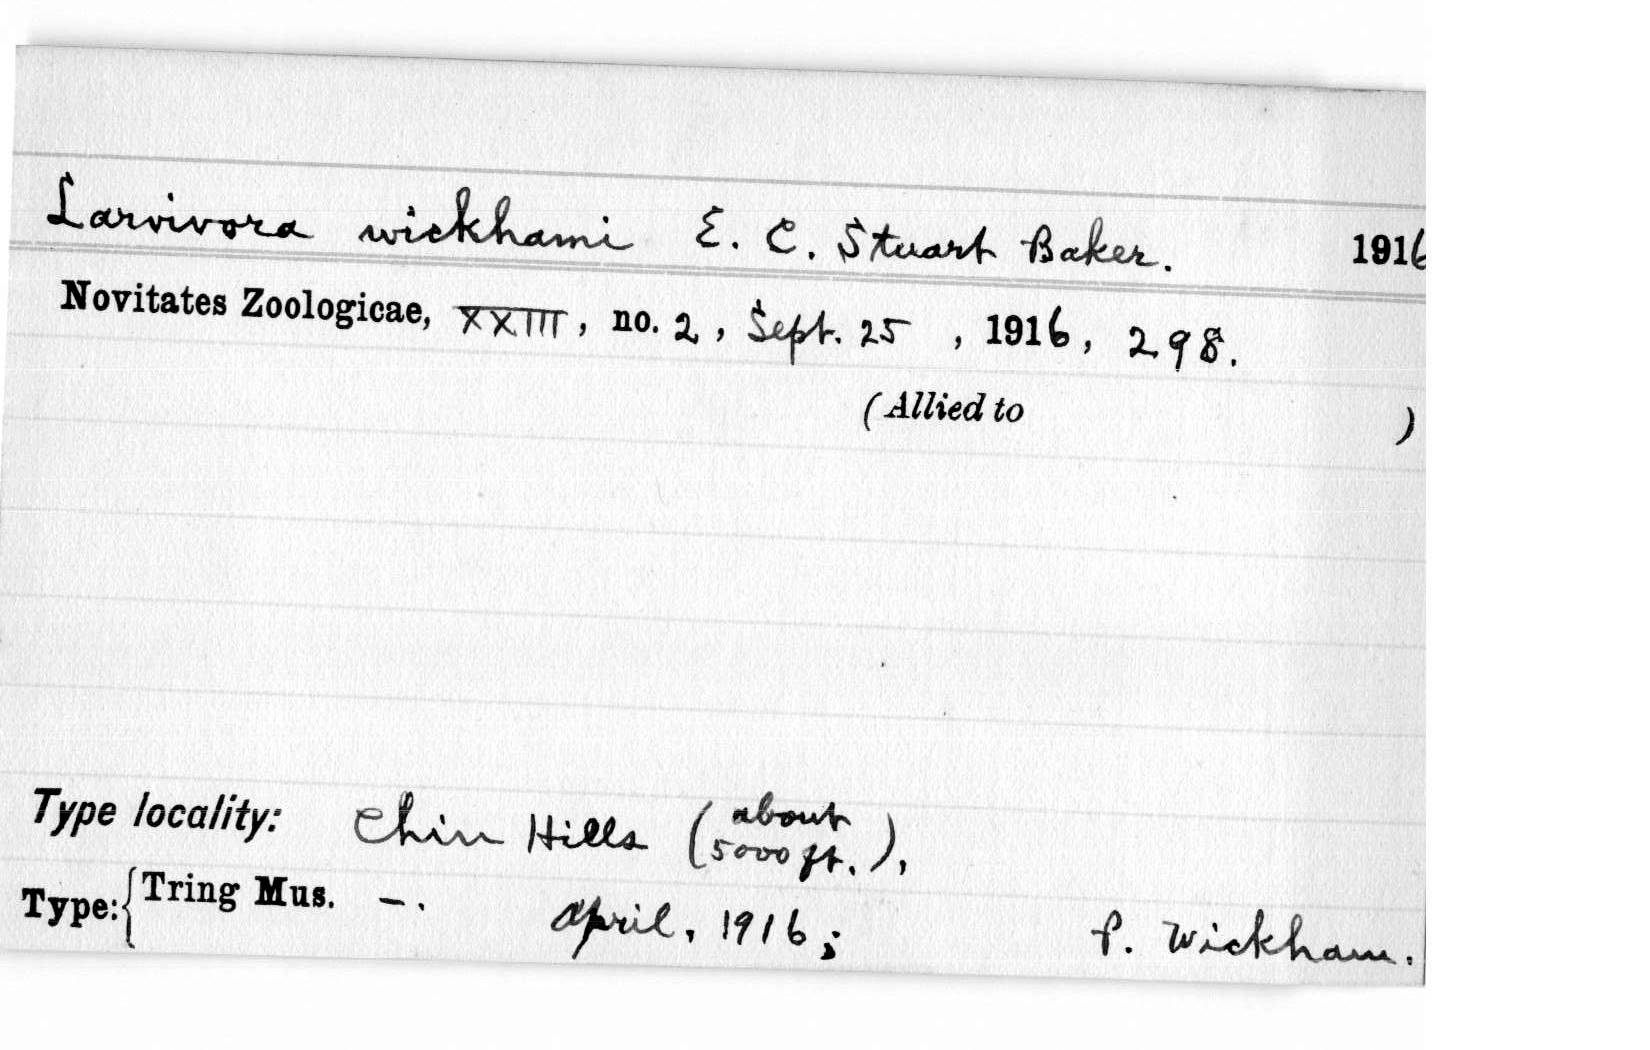 Larvivora wickhami E. C. Stuart Baker. 1916
Novitates Zoologicae, XXIII, no. 2, Sept. 25, 1916, 298.
(Allied to )
Type locality: Chin Hills (about 5000 ft.),
Type: {Tring Mus. —. April, 1916; P. Wickham.